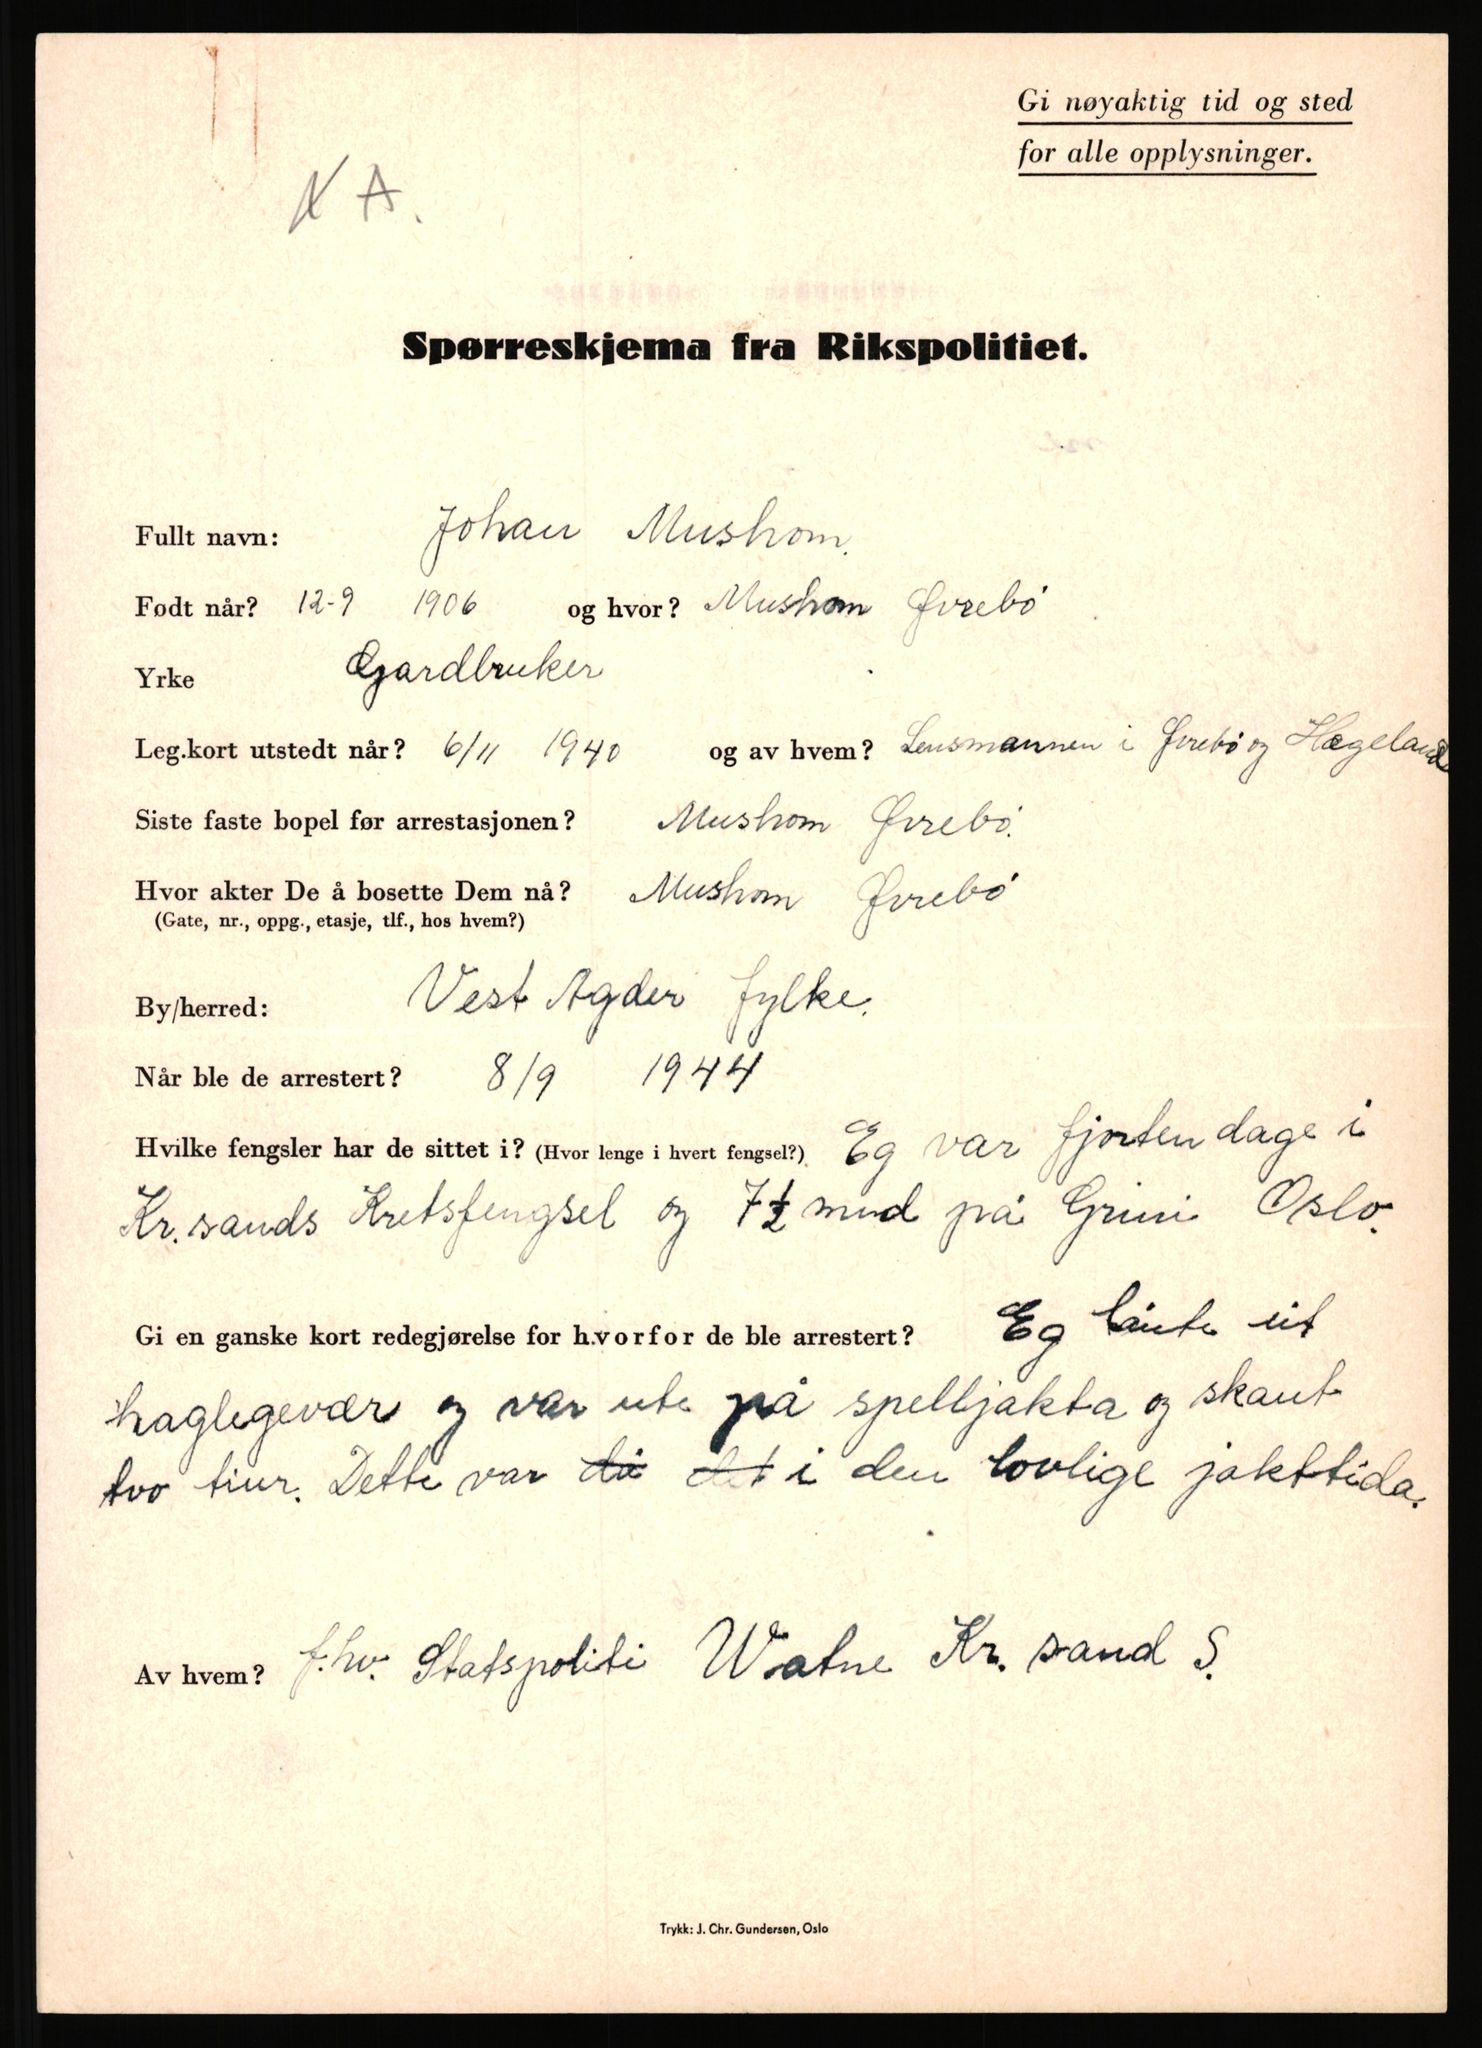 Gi nøyaktig tid og sted
for alle opplysninger.
A.
Spørreskjema fra Rikspolitiet.
Fullt navn: Johan Mushom.
Født når? 12-9 1906 og hvor? Mushom Øvrebö
Yrke Gardbruker
Leg.kort utstedt når? 6/11 1940 og av hvem? Lensmannen i Øvrebö og Hægeland
Siste faste bopel før arrestasjonen? Mushom Øvrebö.
Hvor akter De å bosette Dem nå? Mushom Øvrebö
(Gate, nr., oppg., etasje, tlf., hos hvem?)
By/herred: Vest Agder fylke.
Når ble de arrestert? 8/9 1944
Hvilke fengsler har de sittet i? (Hvor lenge i hvert fengsel?) Eg var fjorten dage i
Kr.sands Kretsfengsel og 7½ mnd på Grini Oslo.
Gi en ganske kort redegjørelse for h.vorfor de ble arrestert? Eg lånte ut
haglegevær og var ute på spelljakta og skaut
tvo tiur. Dette var då det i den lovlige jakttida.
Av hvem? f.hv. Statspoliti Watne Kr.sand S.
Trykk: J. Chr. Gundersen, Oslo